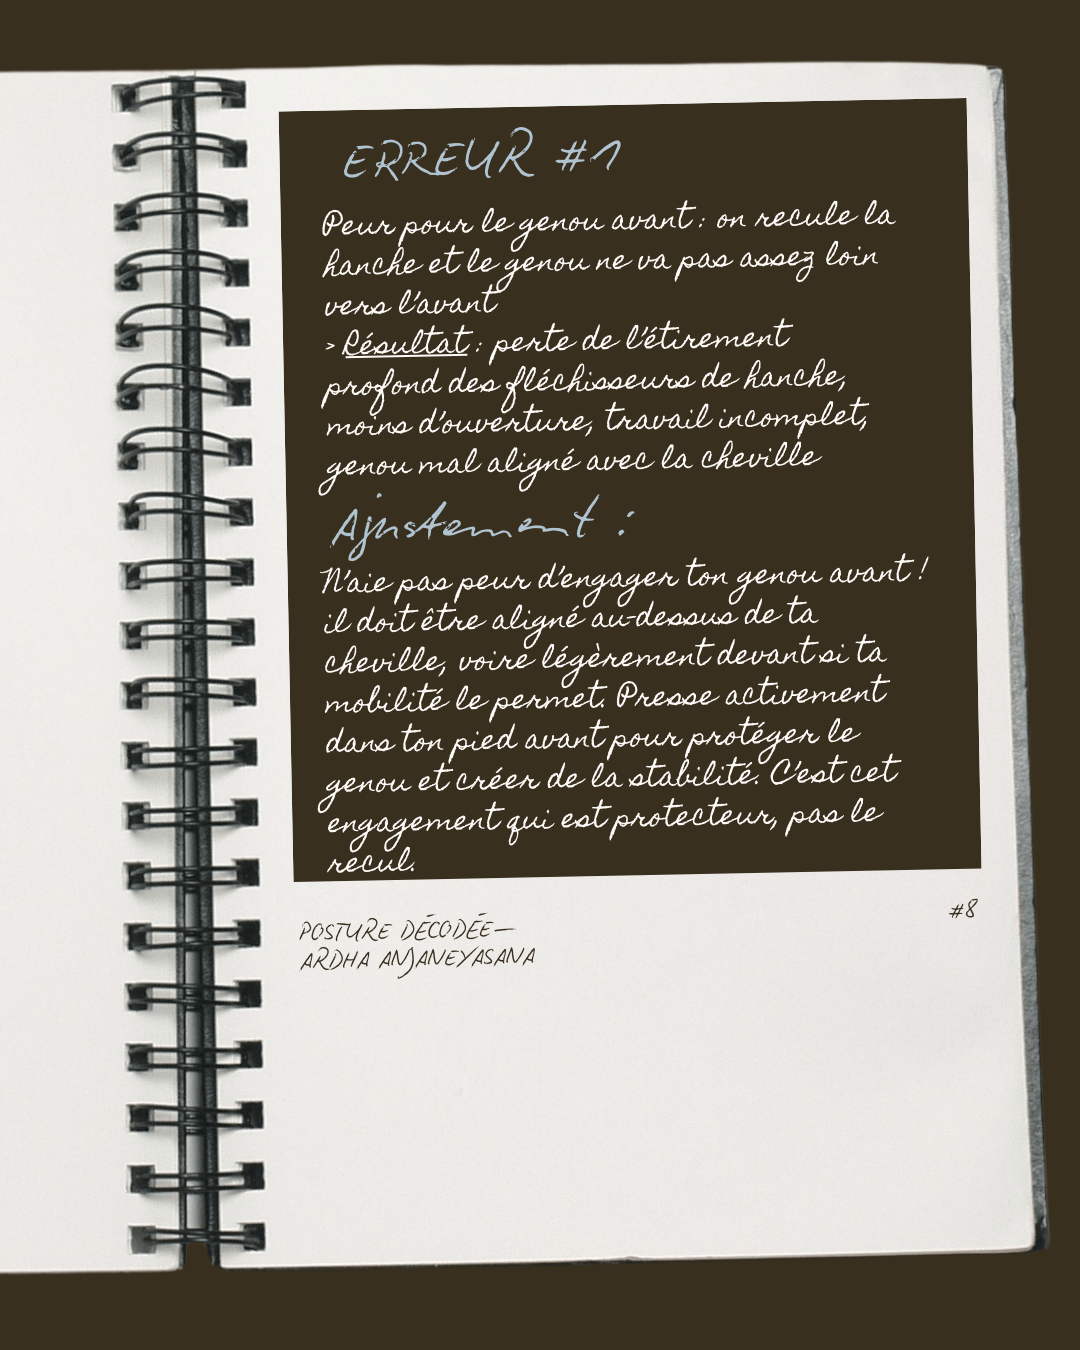 ERREUR #1
Peur pour le genou avant : on recule la
hanche et le genou ne va pas assez loin
vers l'avant
> Résultat : perte de l'étirement
profond des fléchisseurs de hanche,
moins d'ouverture, travail incomplet,
genou mal aligné avec la cheville
Ajustement :
N'aie pas peur d'engager ton genou avant !
il doit être aligné au-dessus de ta
cheville, voire légèrement devant si ta
mobilité le permet. Presse activement
dans ton pied avant pour protéger le
genou et créer de la stabilité. C'est cet
engagement qui est protecteur, pas le
recul.
#8
POSTURE DÉCODÉE—
ARDHA ANJANEYASANA